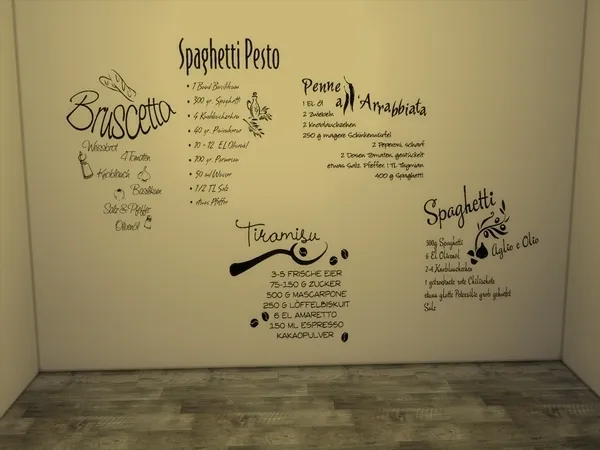 Bruscetta
Weissbrot
4 Tomaten
Knoblauch
Basilikum
Salz & Pfeffer
Olivenöl
Spaghetti Pesto
• 1 Bund Basilikum
• 300 gr. Spaghetti
• 4 Knoblauchzehen
• 40 gr. Pinienkerne
• 10 - 12 El Olivenöl
• 100 gr. Parmesan
• 50 ml Wasser
• 1/2 TL Salz
• etwas Pfeffer
Penne
a'll Arrabbiata
1 El Öl
2 Zwiebeln
2 Knoblauchzehen
250 g magere Schinkenwürfel
2 Peperoni, scharf
2 Dosen Tomaten, gestückelt
etwas Salz Pfeffer 1 TL Thymian
400 g Spaghetti
Tiramisu
3-5 FRISCHE EIER
75-150 G ZUCKER
500 G MASCARPONE
250 G LÖFFELBISKUIT
6 EL AMARETTO
150 ML ESPRESSO
KAKAOPULVER
Spaghetti
Aglio e Olio
500g Spaghetti
6 El Olivenöl
2-4 Knoblauchzehen
1 getrocknete rote Chilischote
etwas glatte Petersilie grob gehackt
Salz